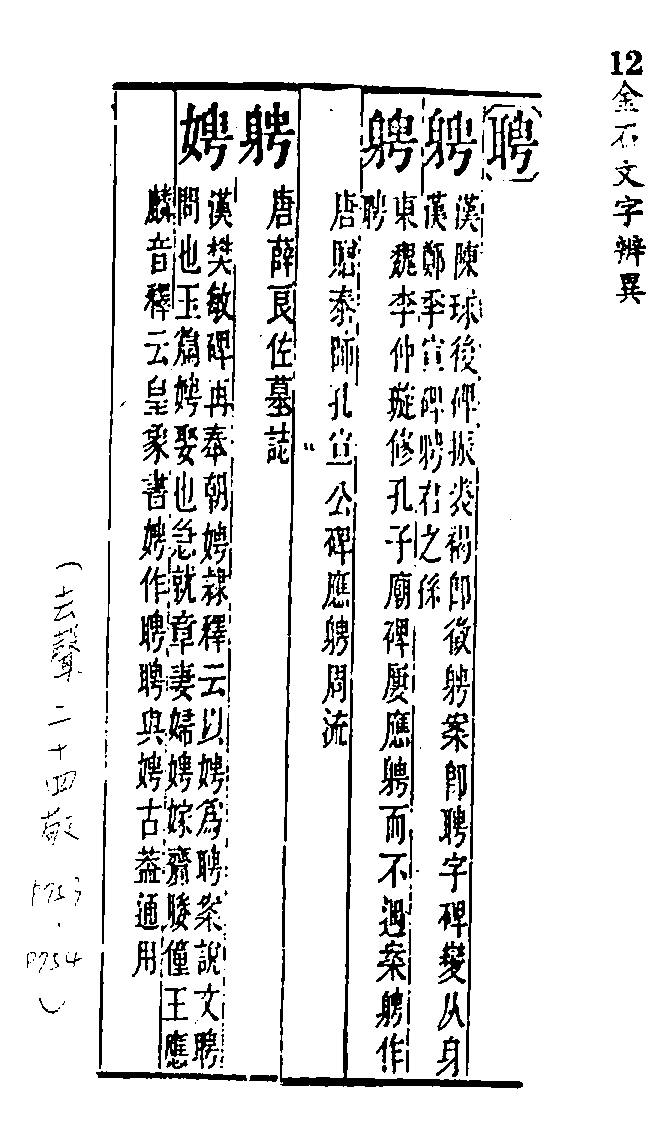 12 金石文字辨異
聘
躸
漢陳球後碑振炎裼即徵躸案即聘字碑變从身
漢鄭季宣碑躸君之孫
躸
東魏李仲璇修孔子廟碑屢應躸而不遇案躸作
聘
唐贈泰師孔宣公碑應躸周流
躸
唐薛良佐墓誌
娉
漢樊敏碑再奉朝娉隸釋云以娉為聘案說文聘
問也玉篇娉娶也急就章妻婦娉嫁齎媵僮王應
麟音釋云皇象書娉作聘聘與娉古葢通用
(去聲二十四敬 P753.P754)